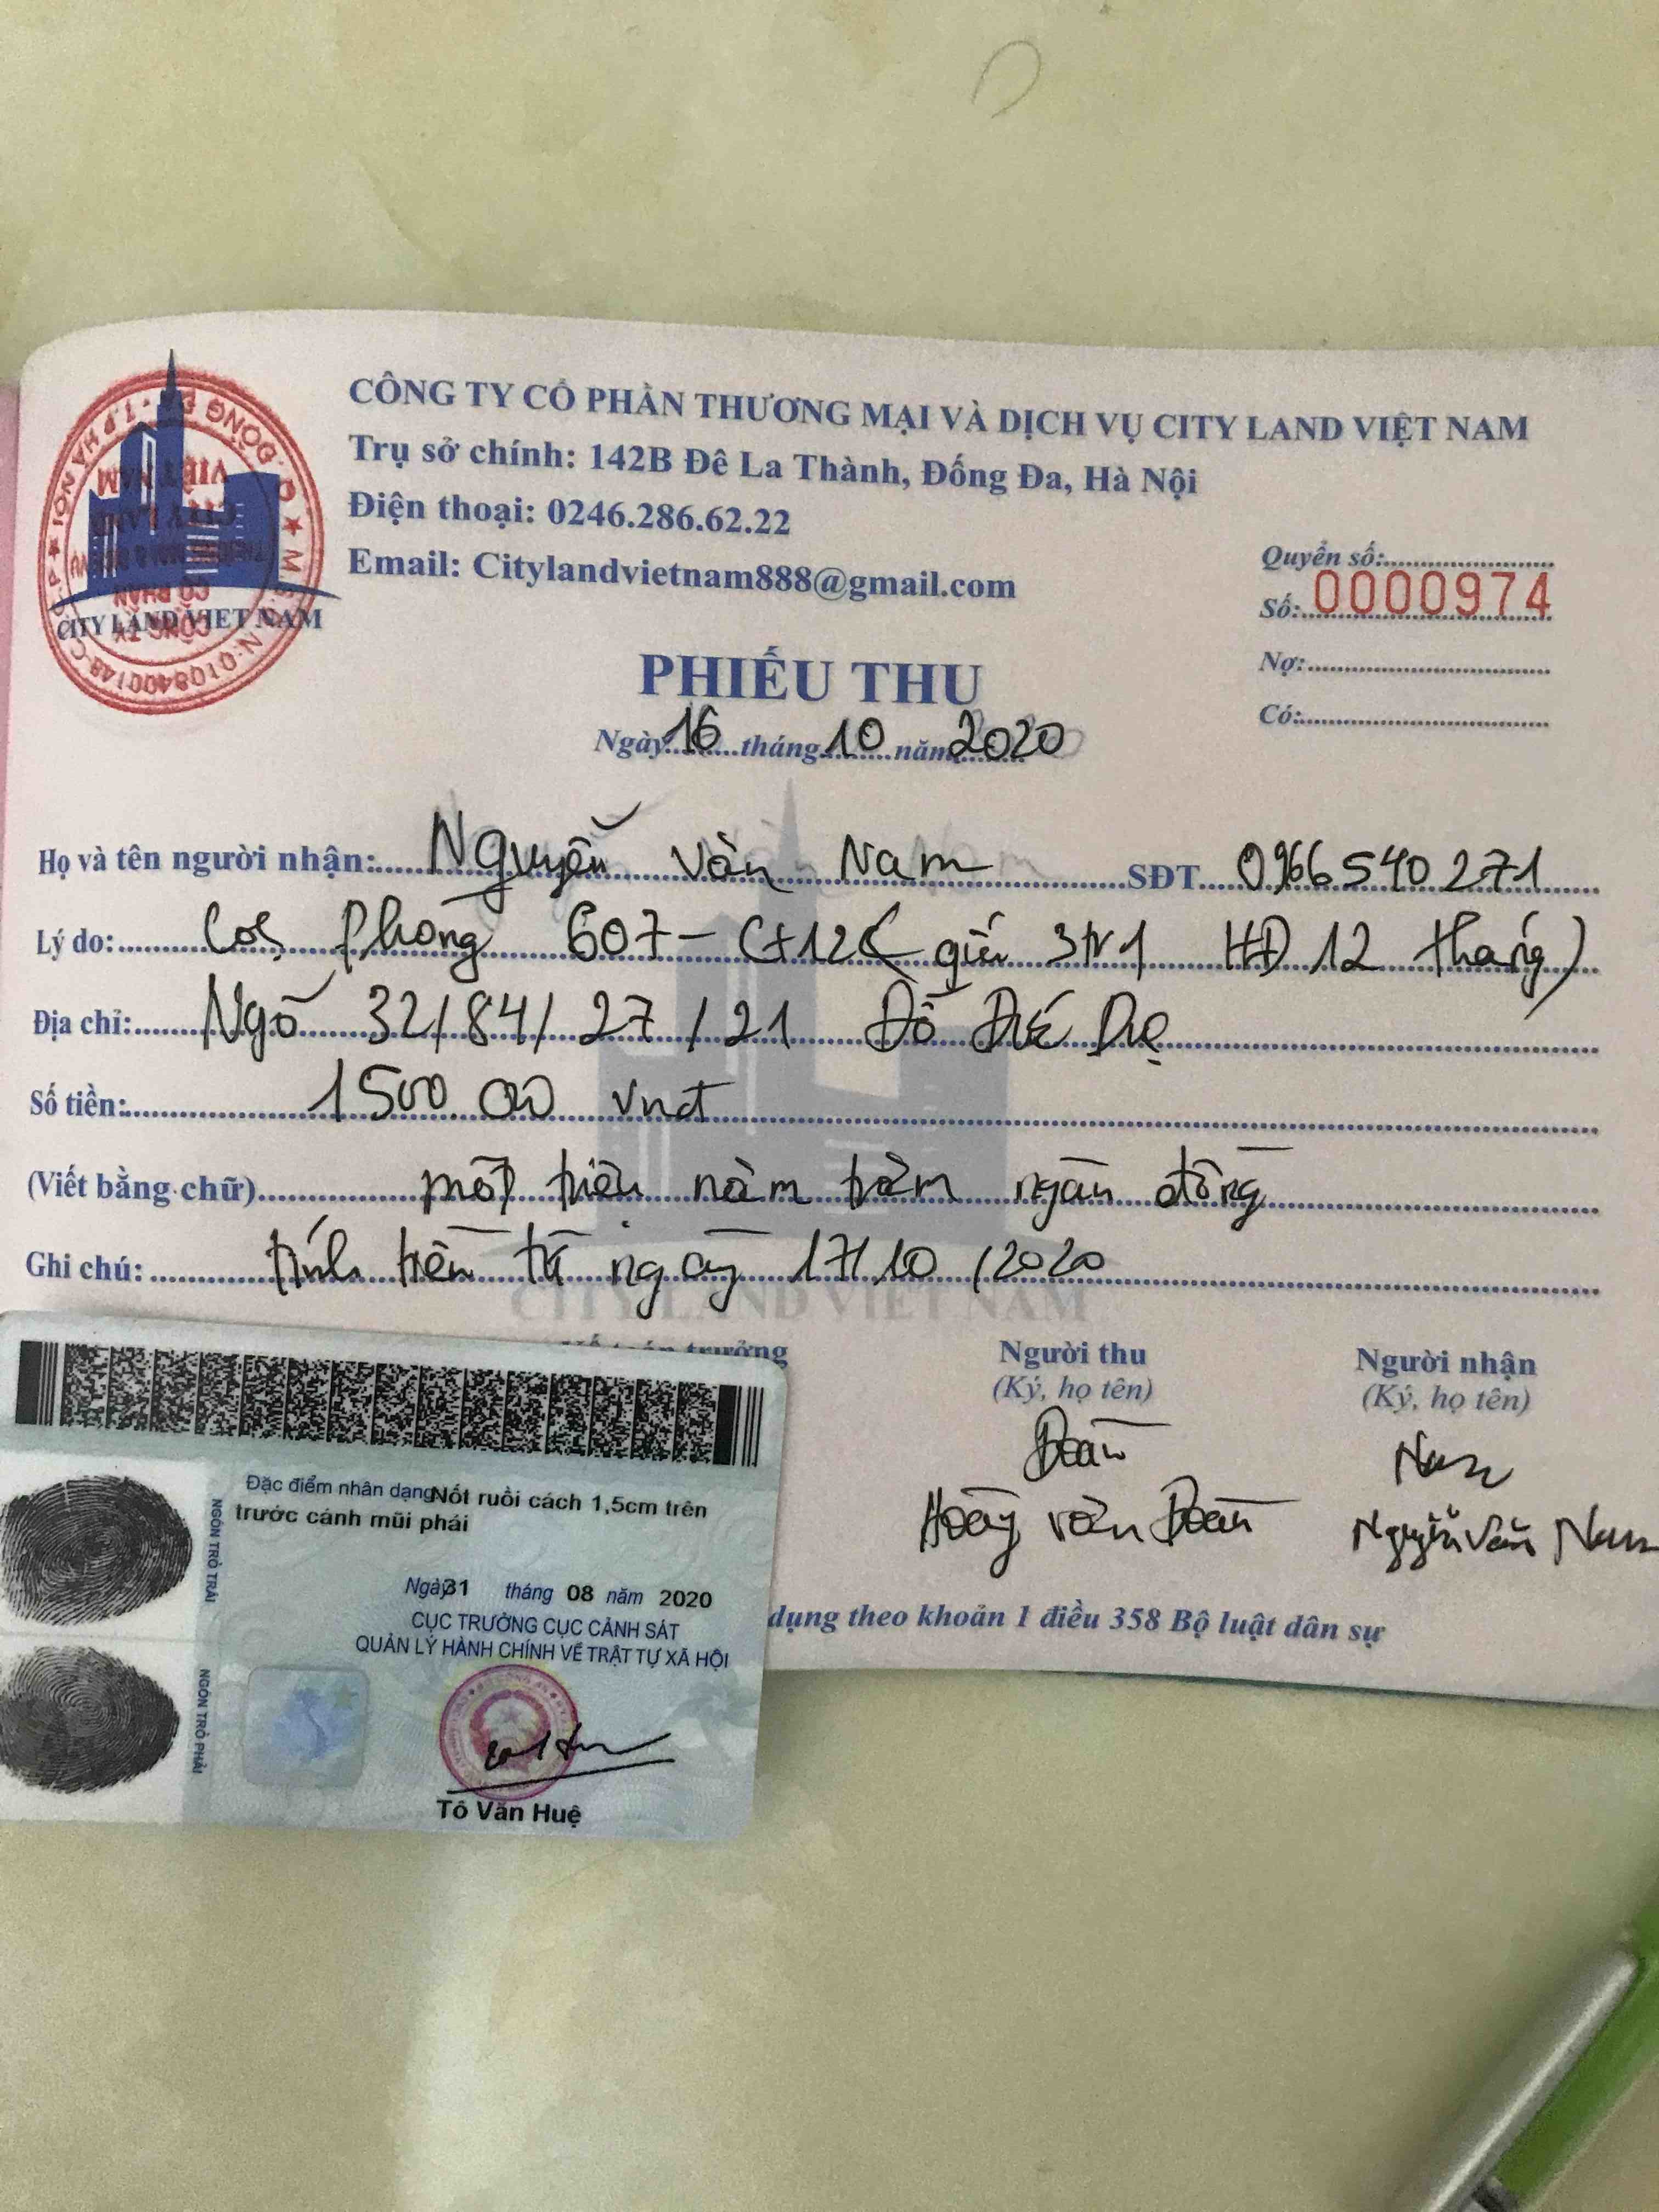 CÔNG TY CỔ PHẦN THƯƠNG MẠI VÀ DỊCH VỤ CITY LAND VIỆT NAM
Trụ sở chính: 142B Đê La Thành, Đống Đa, Hà Nội
Điện thoại: 0246.286.62.22
Email: Citylandvietnam888@gmail.com
CITY LAND VIET NAM
Quyển số:
Số: 0000974
Nợ:
Có:
PHIẾU THU
Ngày 16 tháng 10 năm 2020
Họ và tên người nhận: Nguyễn Văn Nam SĐT 0966540271
Lý do: Cọc phòng 607 - Ct12 ( giá 3tr1 HĐ 12 tháng)
Địa chỉ: Ngõ 32/84/27/21 Đỗ Đức Dục
Số tiền: 1500.00 vnđ
(Viết bằng chữ) một triệu năm trăm ngàn đồng
Ghi chú: tính tiền từ ngày 17/10/2020
CITY LAND VIET NAM
trưởng
Người thu
(Ký, họ tên)
Đoàn
Hoàng Văn Đoàn
Người nhận
(Ký, họ tên)
Nam
Nguyễn Văn Nam
dụng theo khoản 1 điều 358 Bộ luật dân sự
Đặc điểm nhân dạng Nốt ruồi cách 1,5cm trên
trước cánh mũi phải
NGÓN TRỎ TRÁI
NGÓN TRỎ PHẢI
Ngày 31 tháng 08 năm 2020
CỤC TRƯỞNG CỤC CẢNH SÁT
QUẢN LÝ HÀNH CHÍNH VỀ TRẬT TỰ XÃ HỘI
Tô Văn Huệ